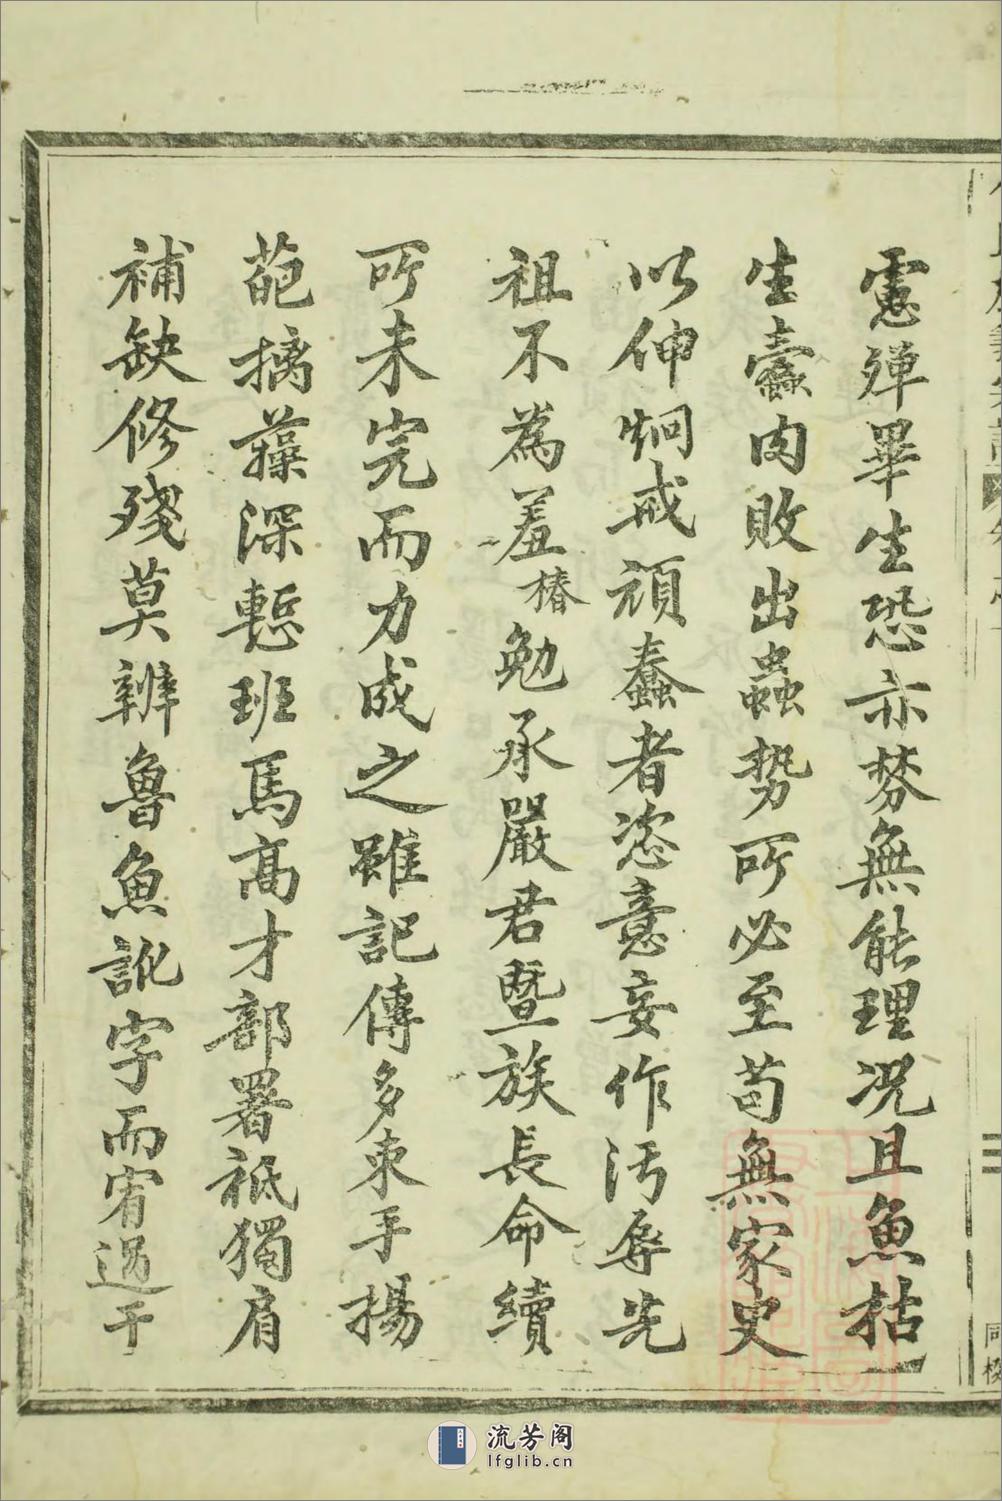 憲殫畢生恐亦棼無能理况且魚枯
生蠹肉敗出蟲勢所必至苟無家史
以伸炯戒頑蠢者恣意妄作污辱先
祖不為羞椿勉承嚴君暨族長命續
所未完而力成之雖記傳多束手揚
葩摛藻深慙班馬高才部署祗獨肩
補缺修殘莫辨魯魚訛字而宥過干
同校
流芳阁
lfglib.cn